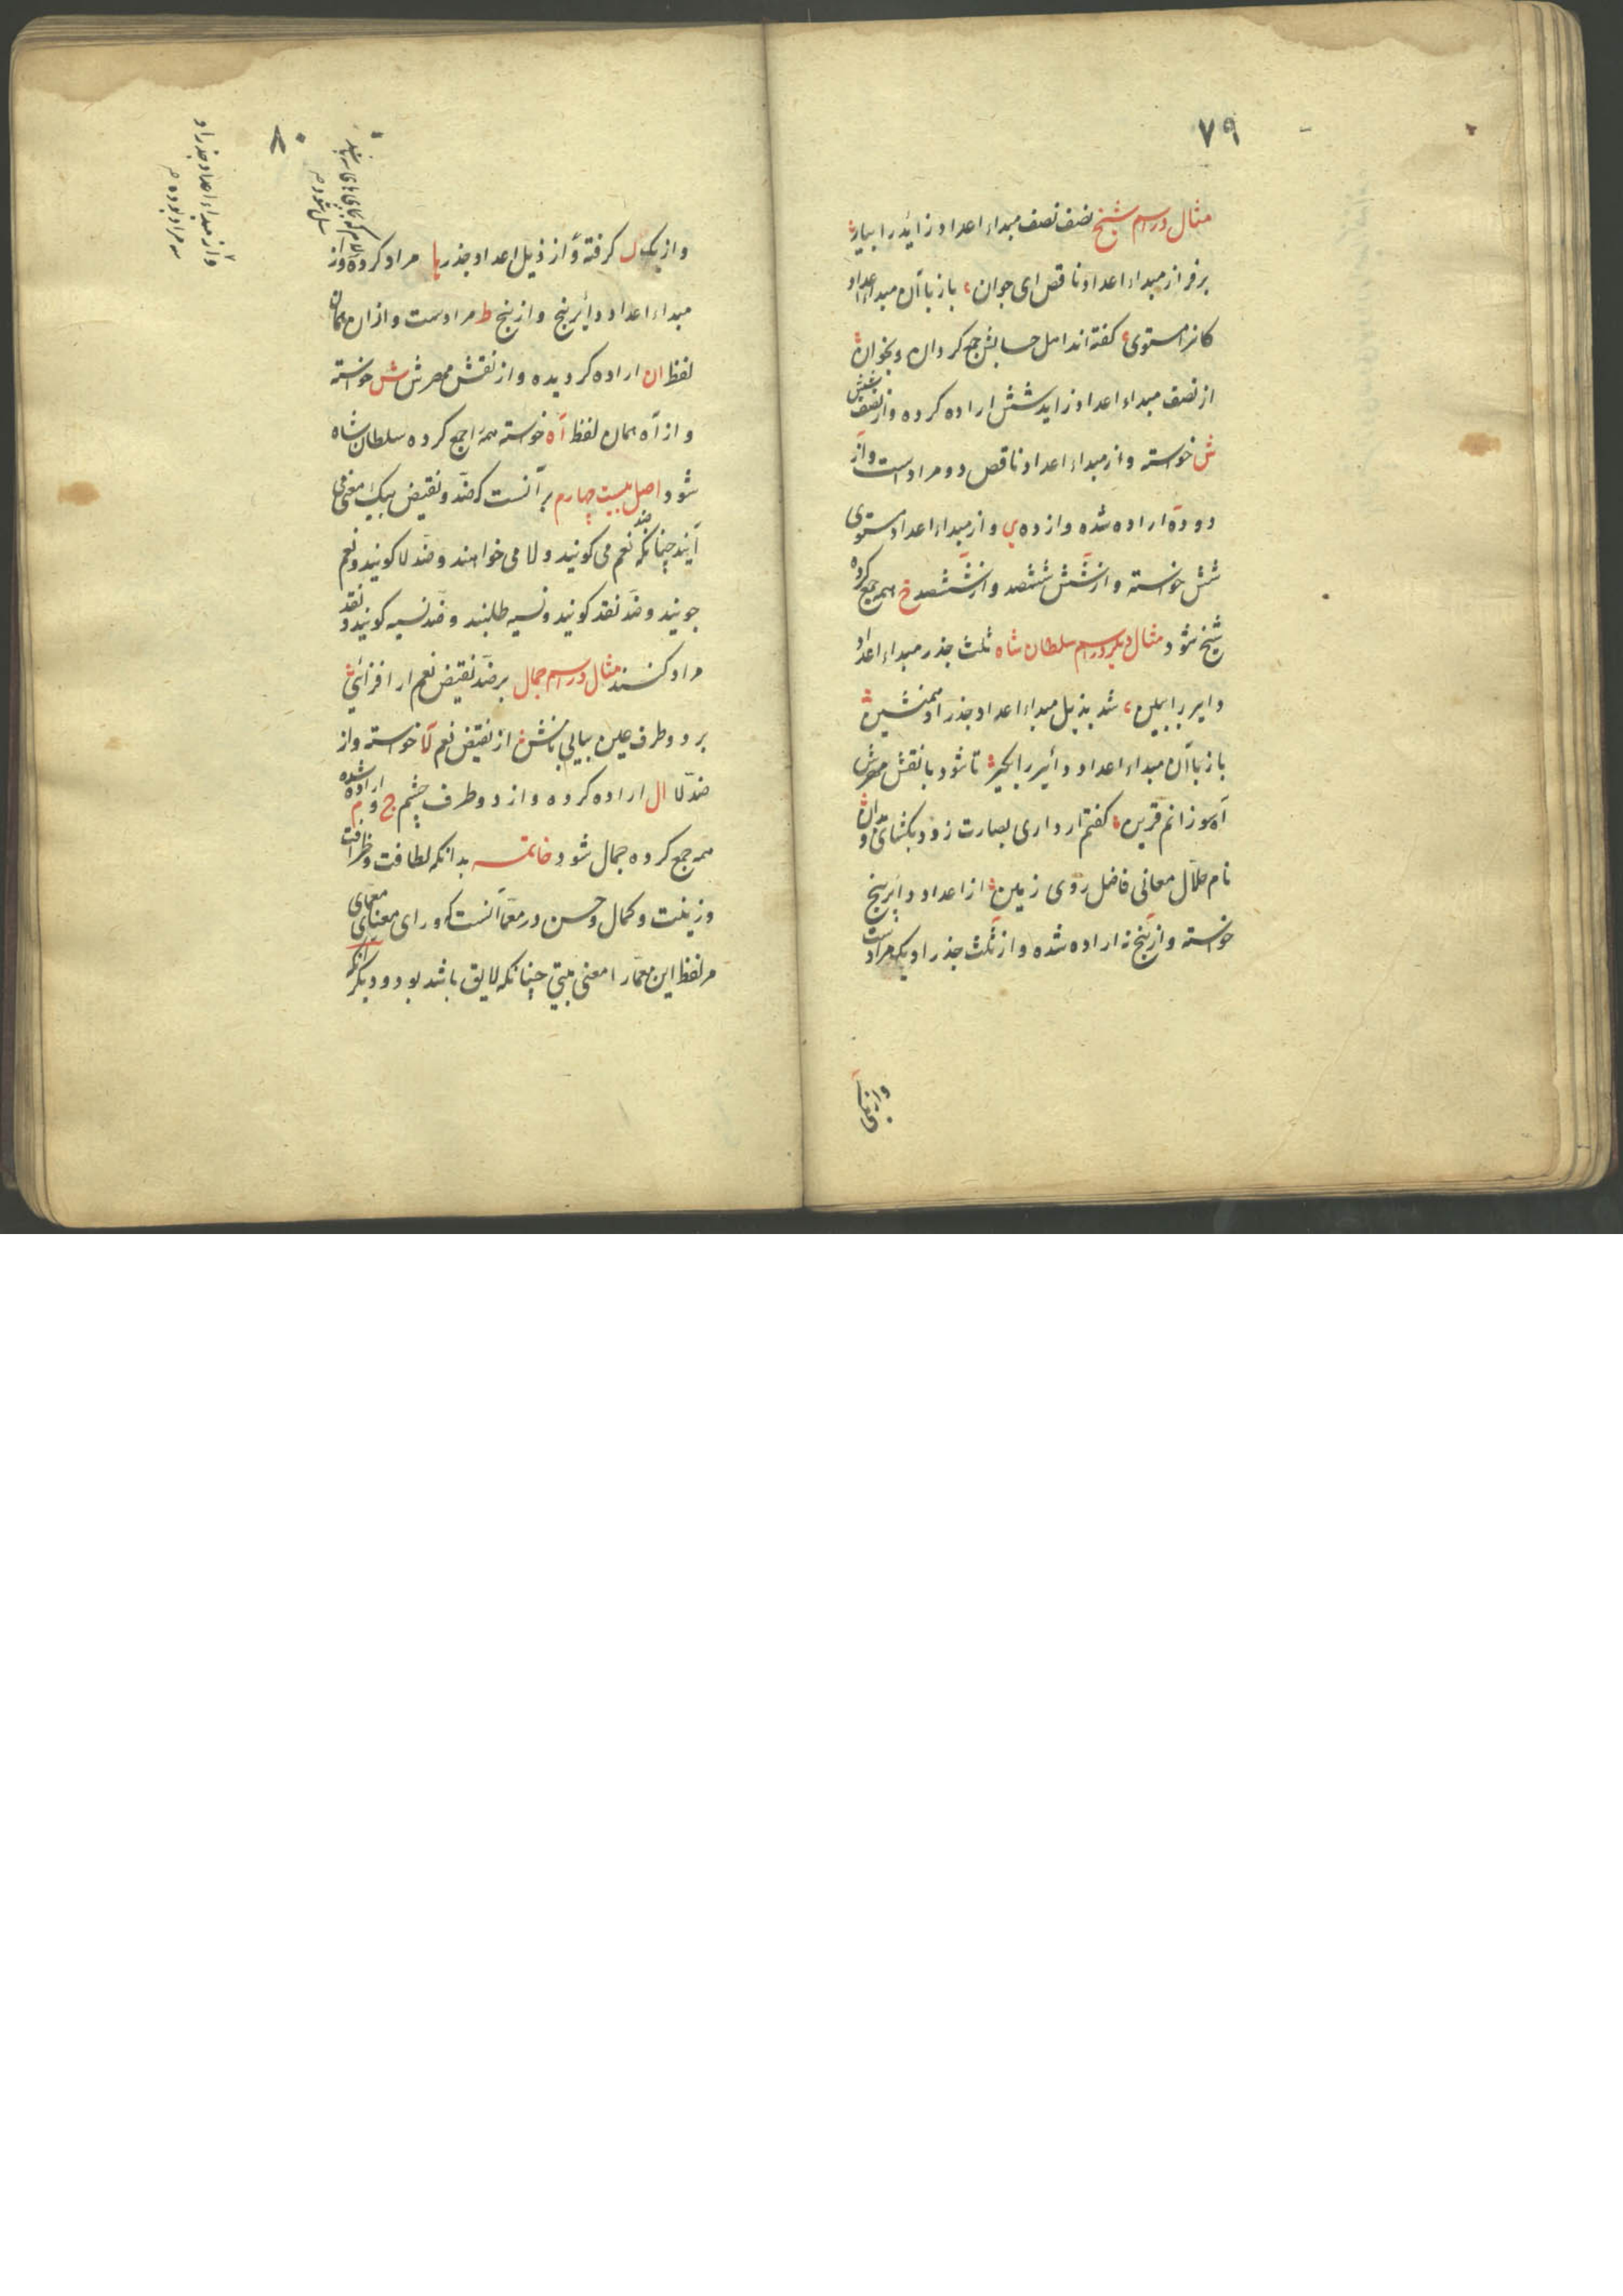 ٧٩
مثال در اسم شیخ نصف نصف مبداء اعداد زاید را بیار
بر فراز مبداء اعداد ناقص ای جوان، باز با آن مبداء اعداد
کانرا مستوی، کفته اند اهل حسابش جمع کردان و بخوان
از نصف مبداء اعداد زاید شش اراده کرده و از نصف شش
ش خواسته و از مبداء اعداد ناقص دو مراد است و از
دو ده اراده شده و از ده ی و از مبداء اعداد مستوی
شش خواسته و از شش ششصد و از ششصد خ همه جمع کرده
شیخ شود مثال دیکر در اسم سلطان شاه ثلث جذر مبداء اعداد
دایر را ببین، شد بذیل مبداء اعداد جذر او همنشین
باز با آن مبداء اعداد دائیر را بکیر تا شود با نقش مهرش
آه سوزانم قرین کفتم ار داری بصارت زود بکشای و بدان
نام حلال معانی فاضل روی زمین از اعداد دایر پنج
خواسته و از پنج نه اراده شده و از ثلث جذر او یک مراد است
٨٠
و از یک ل کرفته و از ذیل اعداد جذر ها مراد کرده و از
مبداء اعداد دایر پنج و از پنج ط مرادست و از ان همان
لفظ ان اراده کردیده و از نقش مهرش ش خواسته
و از آه همان لفظ آه خواسته همه را جمع کرده سلطان شاه
شود اصل بیست چهارم بر آنست که ضد و نقیض بیک معنی می
آیند چنانکه ضد نعم می کویند و لا می خواهند و ضد لا کویند و نعم
جویند و ضد نقد کویند و نسیه طلبند و ضد نسیه کویند و نقد
مراد کنند مثال در اسم جمال بر ضد نقیض نعم ار افزائی
بر دو طرف عین بیابی نامش از نقیض نعم لا خواسته و از
ضد لا ال اراده کرده و از دو طرف چشم ج و م اراده شده
همه جمع کرده جمال شود خاتمه بدانکه لطافت و ظرافت
و زینت و کمال و حسن در معما آنست که ورای معنای معمای
مر لفظ این معما را معنی بیتی چنانکه لایق باشد بود و دیکر آنکه
و از مبداء اعداد جذر او
سه مراد بوده